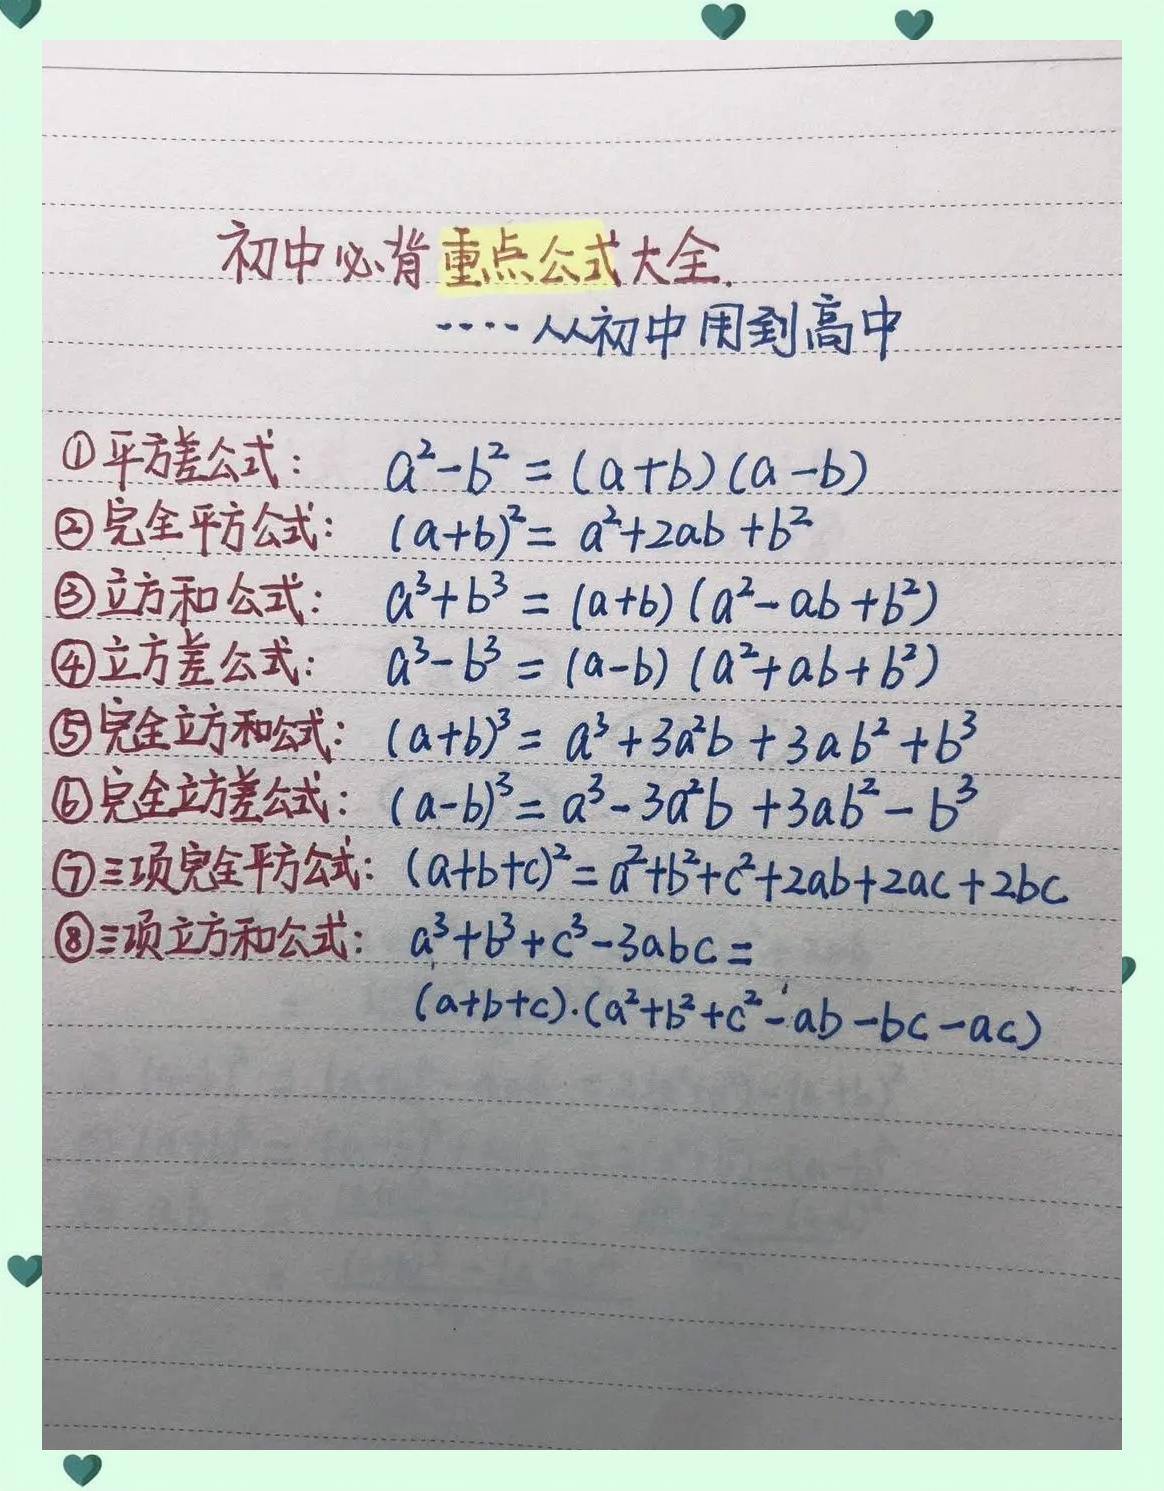 初中必背重点公式大全.
····从初中用到高中
①平方差公式: a²-b²=(a+b)(a-b)
②完全平方公式: (a+b)²=a²+2ab+b²
③立方和公式: a³+b³=(a+b)(a²-ab+b²)
④立方差公式: a³-b³=(a-b)(a²+ab+b²)
⑤完全立方和公式: (a+b)³=a³+3a²b+3ab²+b³
⑥完全立方差公式: (a-b)³=a³-3a²b+3ab²-b³
⑦三项完全平方公式: (a+b+c)²=a²+b²+c²+2ab+2ac+2bc
⑧三项立方和公式: a³+b³+c³-3abc=
(a+b+c)·(a²+b²+c²-ab-bc-ac)